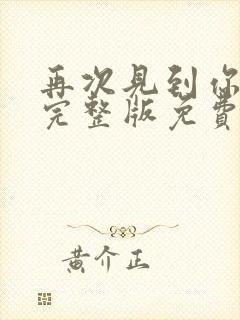 再次見到你
完整版免費
黄介正